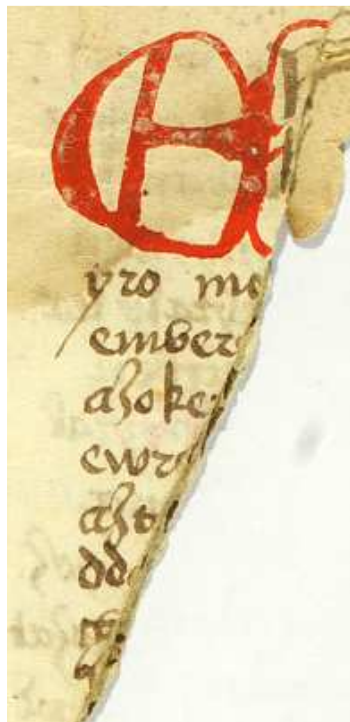 E
yro me
ember
azoke
ewr
azt
dd